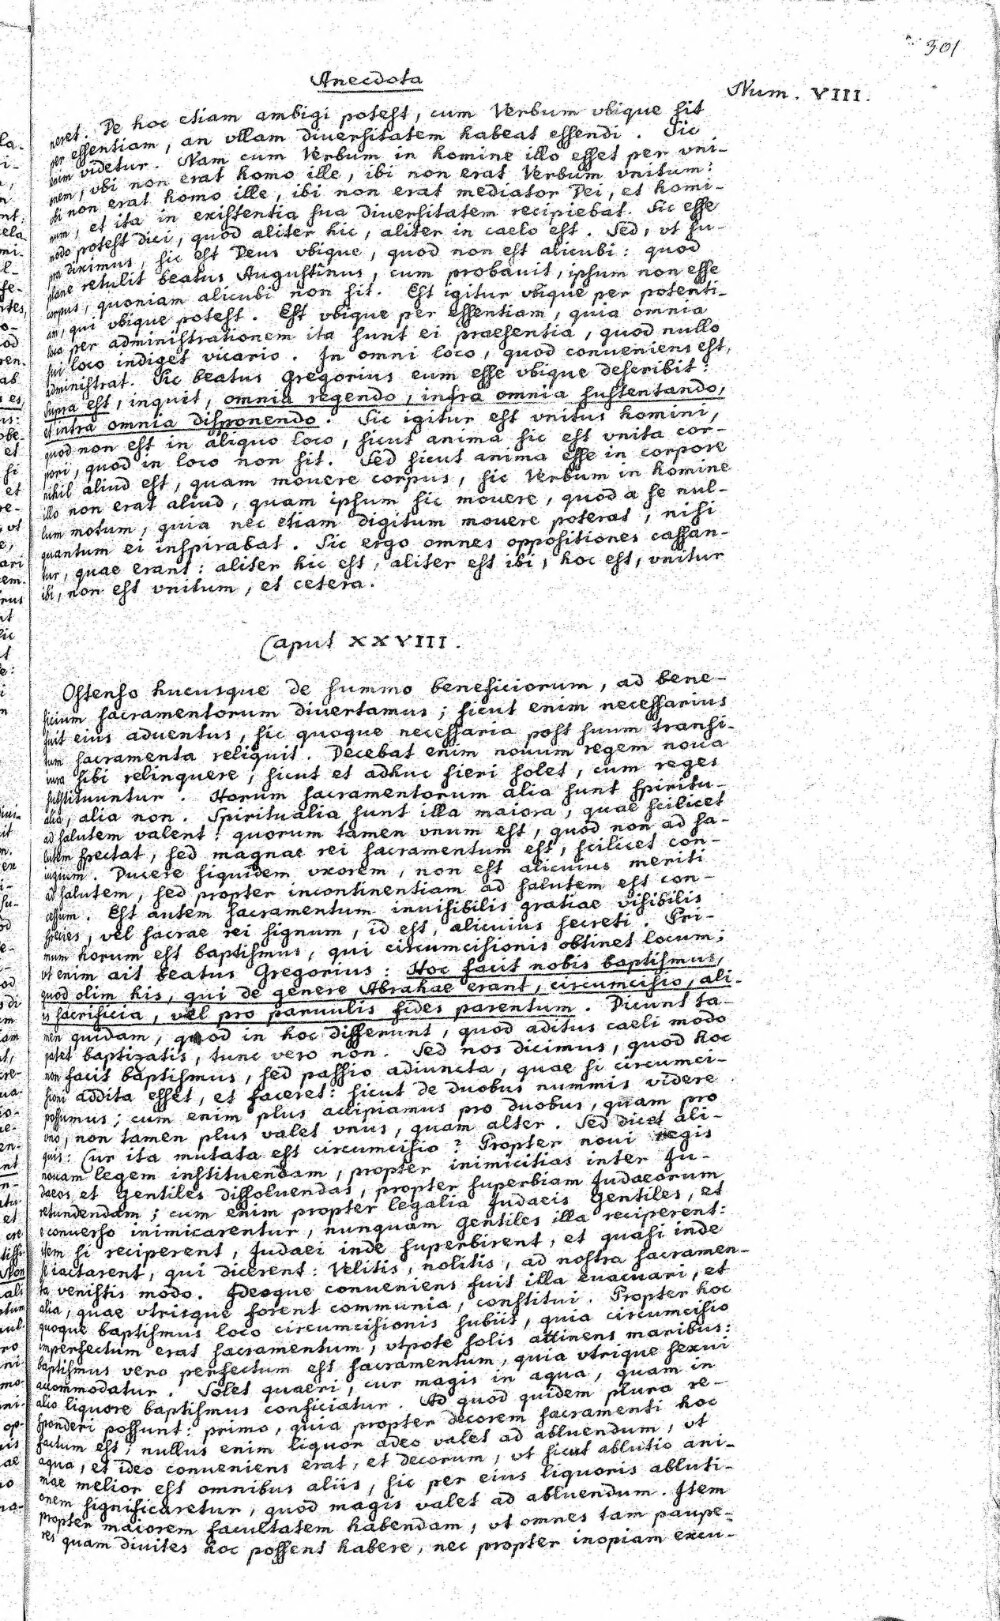 301
Anecdota
Num. VIII.
neret. De hoc etiam ambigi potest, cum Verbum vbique sit
per essentiam, an vllam diuersitatem habeat essendi. Sic
enim videtur. Nam cum Verbum in homine illo esset per vni-
onem, vbi non erat homo ille, ibi non erat Verbum vnitum:
ibi non erat homo ille, ibi non erat mediator Dei, et homi-
num, et ita in existentia sua diuersitatem recipiebat. Sic esse
modo potest dici, quod aliter hic, aliter in caelo est. Sed, vt su-
pra diximus, sic est Deus vbique, quod non est alicubi: quod
plane retulit beatus Augustinus, cum probauit, ipsum non esse
corpus, quoniam alicubi non sit. Est igitur vbique per potenti-
am, qui vbique potest. Est vbique per essentiam, quia omnia
loca per administrationem ita sunt ei praesentia, quod nullo
sui loco indiget vicario. In omni loco, quod conueniens est,
administrat. Sic beatus Gregorius eum esse vbique describit:
Supra est, inquit, omnia regendo, infra omnia sustentando,
et intra omnia disponendo. Sic igitur est vnitus homini,
quod non est in aliquo loco, sicut anima sic est vnita cor-
pori, quod in loco non sit. Sed sicut anima esse in corpore
nihil aliud est, quam mouere corpus, sic Verbum in homine
illo non erat aliud, quam ipsum sic mouere, quod a se nul-
lum motum, quia nec etiam digitum mouere poterat, nisi
quantum ei inspirabat. Sic ergo omnes oppositiones cassan-
tur, quae erant: aliter hic est, aliter est ibi, hoc est, vnitur
ibi, non est vnitum, et cetera.
Caput XXVIII.
Ostenso hucusque de summo beneficiorum, ad bene-
ficium sacramentorum diuertamus; sicut enim necessarius
fuit eius aduentus, sic quoque necessaria post suum transi-
tum sacramenta reliquit. Decebat enim nouum regem noua
iura sibi relinquere, sicut et adhuc fieri solet, cum reges
substituuntur. Horum sacramentorum alia sunt spiritu-
alia, alia non. Spiritualia sunt illa maiora, quae scilicet
ad salutem valent: quorum tamen vnum est, quod non ad sa-
lutem spectat, sed magnae rei sacramentum est, scilicet con-
iugium. Ducere siquidem vxorem, non est alicuius meriti
ad salutem, sed propter incontinentiam ad salutem est con-
cessum. Est autem sacramentum inuisibilis gratiae visibilis
species, vel sacrae rei signum, id est, alicuius secreti. Pri-
mum horum est baptismus, qui circumcisionis obtinet locum;
vt enim ait beatus Gregorius: Hoc facit nobis baptismus,
quod olim his, qui de genere Abrahae erant, circumcisio, ali-
is sacrificia, vel pro paruulis fides parentum. Dicunt ta-
men quidam, quod in hoc differunt, quod aditus caeli modo
patet baptizatis, tunc vero non. Sed nos dicimus, quod hoc
non facit baptismus, sed passio adiuncta, quae si circumci-
sioni addita esset, et faceret: sicut de duobus nummis videre
possumus; cum enim plus accipiamus pro duobus, quam pro
vno, non tamen plus valet vnus, quam alter. Sed dicet ali-
quis: Cur ita mutata est circumcisio? Propter noui regis
nouam legem instituendam, propter inimicitias inter Ju-
daeos, et Gentiles dissoluendas, propter superbiam Judaeorum
retundendam; cum enim propter legalia Judaeis Gentiles, et
e conuerso inimicarentur, nunquam Gentiles illa reciperent:
item si reciperent, Judaei inde superbirent, et quasi inde
se iactarent, qui dicerent: Velitis, nolitis, ad nostra sacramen-
ta venistis modo. Ideoque conueniens fuit illa euacuari, et
alia, quae vtrisque forent communia, constitui. Propter hoc
quoque baptismus loco circumcisionis subiit, quia circumcisio
imperfectum erat sacramentum, vtpote solis attinens maribus:
baptismus vero perfectum est sacramentum, quia vtrique sexui
accommodatur. Solet quaeri, cur magis in aqua, quam in
alio liquore baptismus conficiatur. Ad quod quidem plura re-
sponderi possunt: primo, quia propter decorem sacramenti hoc
factum est; nullus enim liquor adeo valet ad abluendum, vt
aqua, et ideo conueniens erat, et decorum, vt sicut ablutio ani-
mae melior est omnibus aliis, sic per eius liquoris abluti-
onem significaretur, quod magis valet ad abluendum. Item
propter maiorem facultatem habendam, vt omnes tam paupe-
res quam diuites hoc possent habere, nec propter inopiam excu-